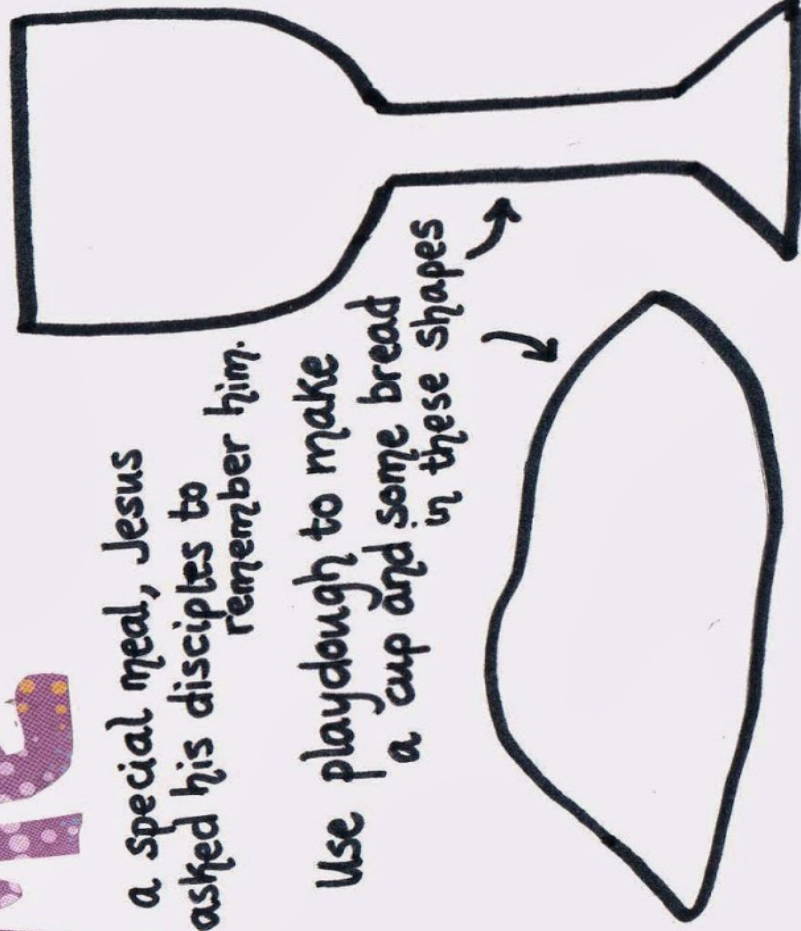 a special meal, Jesus
asked his disciples to
remember him.
Use playdough to make
a cup and some bread
in these shapes